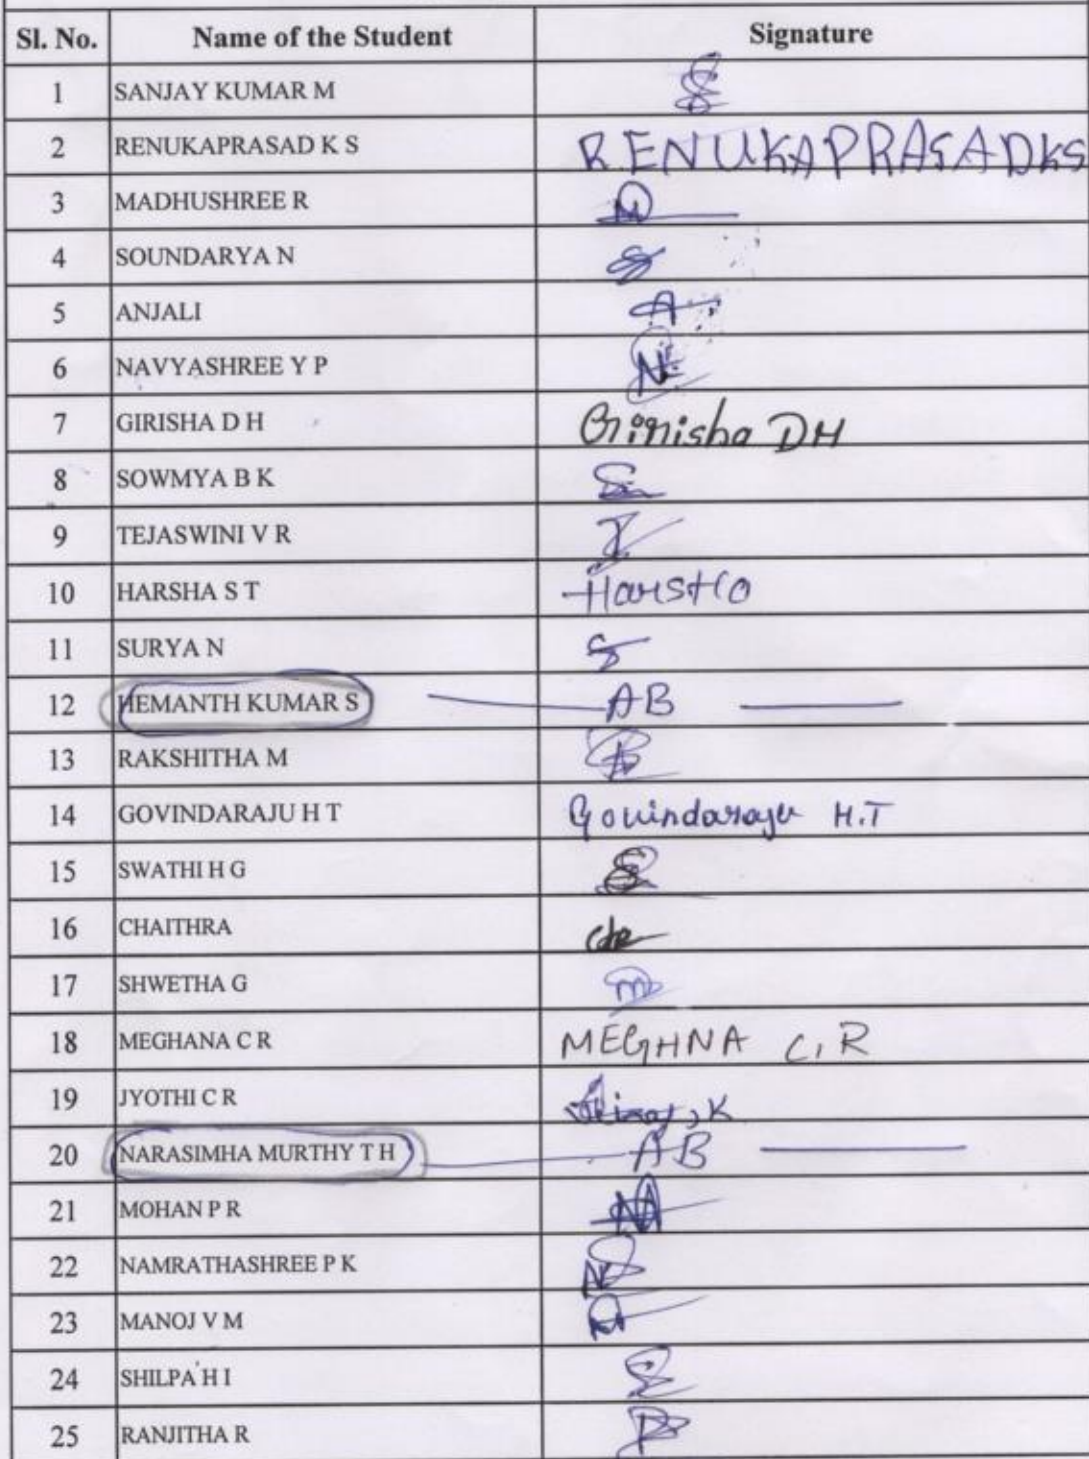 Sl. No. Name of the Student Signature
1 SANJAY KUMAR M
2 RENUKAPRASAD K S RENUKAPRASADKS
3 MADHUSHREE R
4 SOUNDARYA N
5 ANJALI A
6 NAVYASHREE Y P N
7 GIRISHA D H Girisha DH
8 SOWMYA B K
9 TEJASWINI V R
10 HARSHA S T HarsHa
11 SURYA N
12 HEMANTH KUMAR S AB
13 RAKSHITHA M
14 GOVINDARAJU H T Govindaraju H.T
15 SWATHI H G
16 CHAITHRA
17 SHWETHA G
18 MEGHANA C R MEGHNA C, R
19 JYOTHI C R
20 NARASIMHA MURTHY T H AB
21 MOHAN P R
22 NAMRATHASHREE P K
23 MANOJ V M
24 SHILPA H I
25 RANJITHA R